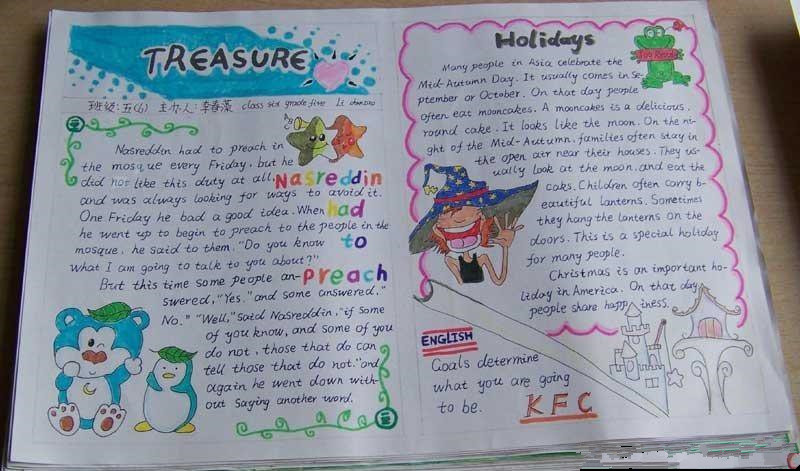 TREASURE
班级:五(6) 主办人:李春藻 class six grade five
Nasreddin had to preach in
the mosque every Friday, but he
did not like this duty at all,
and was always looking for ways to avoid it.
One Friday he bad a good idea. When
he went up to begin to preach to the people in the
mosque, he said to them, "Do you know
what I am going to talk to you about?"
But this time some people an-
swered, "Yes." and some answered,"
No." "Well," said Nasreddin, "if some
of you know, and some of you
do not, those that do can
tell those that do not."and
again he went down with-
out saying another word.
Nasreddin
had
to
preach
Holidays
Many people in Asia celebrate the
Mid-Autumn Day. It usually comes in Se-
ptember or October. On that day people
often eat mooncakes. A mooncakes is a delicious,
round cake. It looks like the moon. On the ni-
ght of the Mid-Autumn, families often stay in
the open air near their houses. They us-
ually look at the moon, and eat the
cakes. Children often carry b-
eautiful lanterns. Sometimes
they hang the lanterns on the
doors. This is a special holiday
for many people.
Christmas is an important ho-
liday in America. On that day
people share happiness.
ENGLISH
Goals determine
what you are going
to be.
KFC